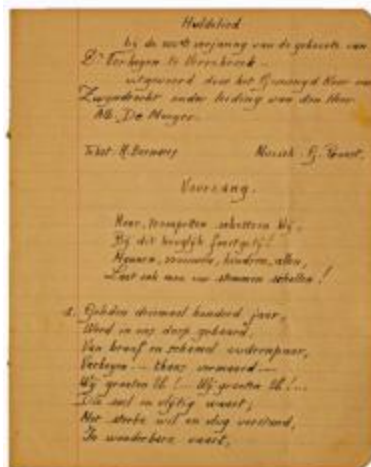 Huldelied
bij de 300ste verjaring van de geboorte van
Dr Verheyen te Verrebroek.
uitgevoerd door het Gemengd Koor van
Zwijndrecht onder leiding van den Heer
Alb. De Meyer.
Tekst: H. Muziek: G.
Voorzang.
Hoor, trompetten schetteren blij,
Bij dit heuglijk feestgetij!
Mannen, vrouwen, kinderen, allen,
Laat ook nu uw stemmen schallen!
1. Geleden driemaal honderd jaar,
Werd in ons dorp gebaard,
Van braaf en schamel ouderenpaar,
Verheyen --- thans vermaard ---
Wij groeten U! -- Wij groeten U!...
Die snel en vlijtig waart;
Met sterke wil en vlug verstand,
Zo wonderbare vaart,